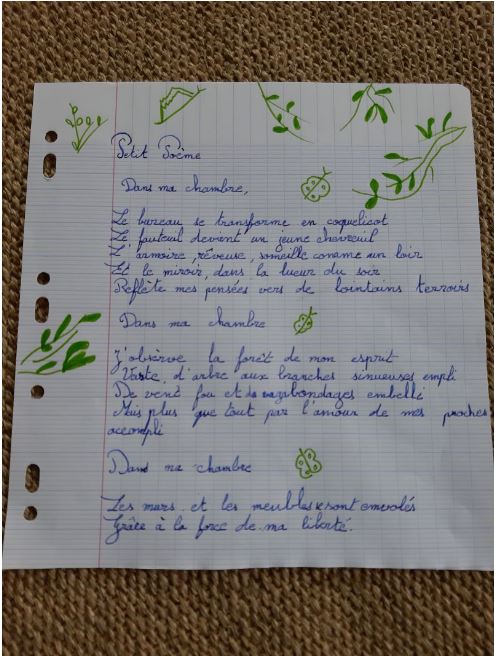 Petit Poème
Dans ma chambre,
Le bureau se transforme en coquelicot
Le fauteuil devient un jeune chevreuil
L'armoire, rêveuse, someille comme un loir
Et le miroir, dans la lueur du soir
Reflète mes pensées vers de lointains terroirs
Dans ma chambre
J'observe la forêt de mon esprit
Vaste, d'arbre aux branches sinueuses empli
De vent fou et de vagabondages embelli
Mais plus que tout par l'amour de mes proches
accompli
Dans ma chambre
Les murs et les meubles se sont envolés
Grâce à la force de ma liberté.